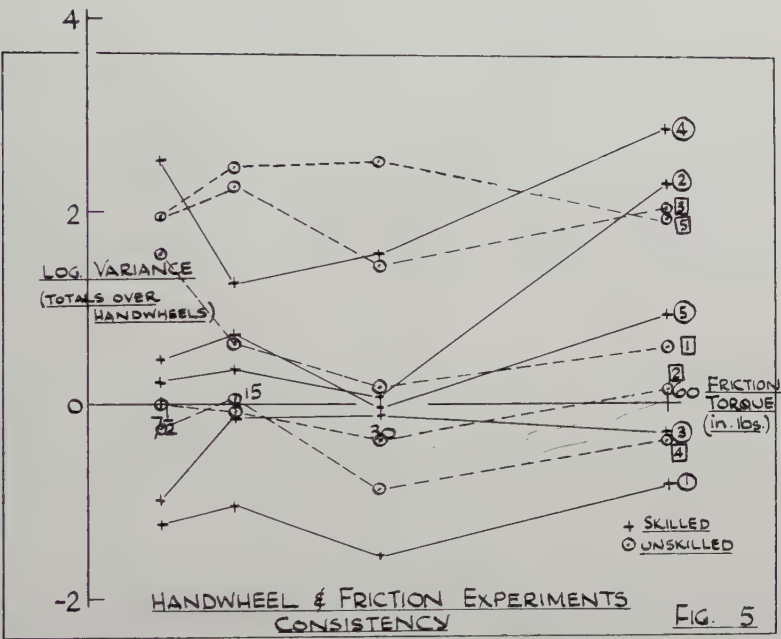 4
2
LOG. VARIANCE
(TOTALS OVER
HANDWHEELS)
0
-2
7½
15
30
60
FRICTION
TORQUE
(in. lbs.)
④
②
3
5
⑤
1
2
③
4
①
+ SKILLED
⊙ UNSKILLED
HANDWHEEL & FRICTION EXPERIMENTS
CONSISTENCY
FIG. 5